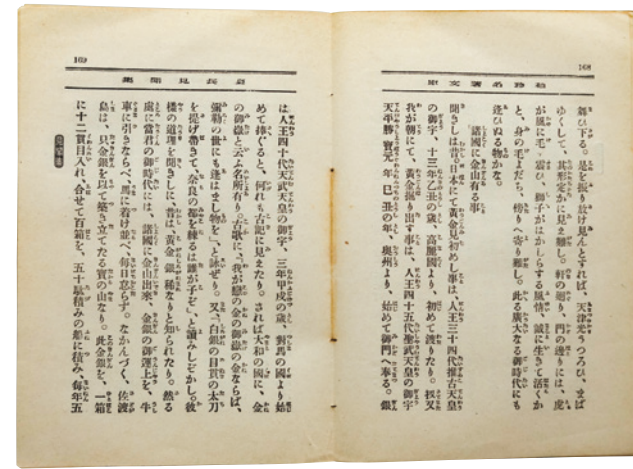 168
袖珍名著文庫
舞ひ下る。是を振り放け見んとすれば、天津光うつろひ、まば
ゆくして、其形定かに見え難し。軒の廻り、門の邊りには、虎
が風に毛を震ひ、獅子がはがしらする風情、誠に生きて活くか
と、身の毛よだち、傍りへ寄り難し。此く廣大なる御時代にも
逢ひぬる物かな。
諸國に金山有る事
聞きしは昔。日本にて黄金見初めし事は、人王三十四代推古天皇
の御宇、十三年乙丑の歳、高麗國より、初めて渡りたり。扨又
我が朝にて、黄金掘り出す事は、人王四十五代聖武天皇の御宇
天平勝寶元年己丑の年、奥州より、始めて御門へ奉る。銀
169
慶長見聞集
は人王四十代天武天皇の御宇、三年甲戌の歳、對馬の國より始
めて捧ぐると、何れも古記に見えたり。されば大和の國に、金
の御嶽と云ふ名所有り。古歌に、「我が戀の金の御嶽の金ならば、
彌勒の世にも逢はまし物を」と詠ぜり。又、「白銀の目貫の太刀
を提げ帶きて、奈良の都を練るは誰が子ぞ」と讀みしぞかし。彼
樣の道理を聞きしに、昔は、黄金、銀稀なりと知られたり。然る
處に當君の御時代には、諸國に金山出來、金銀の御運上を、牛
車に引きならべ、馬に着け並べ、毎日怠らず。なかんづく、佐渡
島は、只金銀を以て築き立てたる寶の山なり。此金銀を、一箱
に十二貫目入れ、合せて百箱を、五十駄積みの船に積み、毎年五